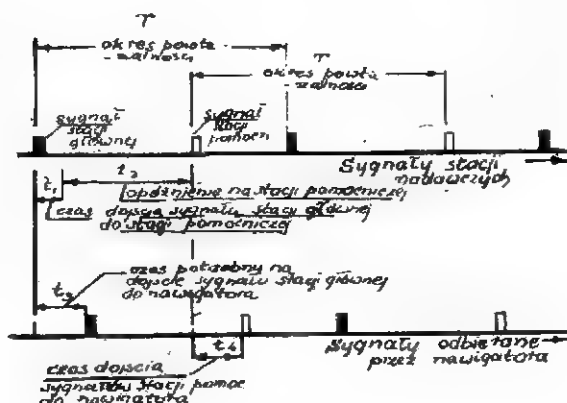 T
okres powta
-rzalności
T
okres powta
-rzalności
sygnał
stacji
głównej
sygnał
stacji
pomocn
Sygnały stacji
nadawczych
t₁
t₂
opóźnienie na stacji pomocniczej
czas dojścia sygnału stacji głównej
do stacji pomocniczej
czas potrzebny na
dojście sygnału stacji głównej
do nawigatora
t₃
t₄
czas dojścia
sygnałów stacji pomoc
do nawigatora
Sygnały odbierane
przez nawigatora